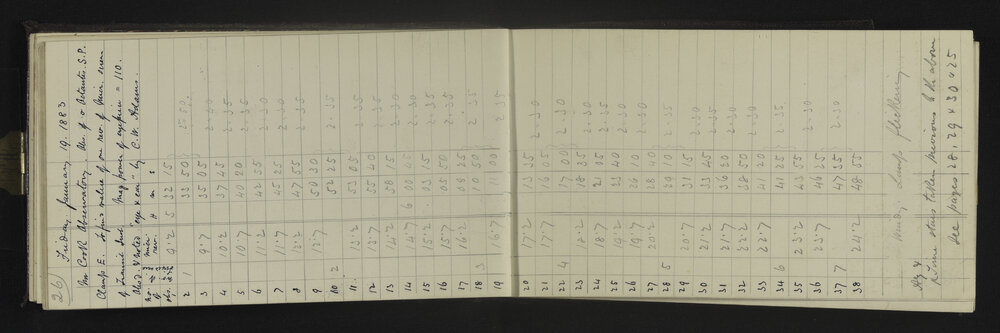 26) Friday January 19. 1883
Mr Cook's Observatory. Obs. of σ Octantis. S.P.
Clamp E. To find value of one rev. of Micr. screw
of Transit Inst. Mag power of eyepiece = 110.
Obsd. & noted "eye & ear" by C. W. Adams.
No. of obs. micr. rev. H m s
9.2 5 32 15
2 1 33 50 2.50
3 9.7 35 05 2.40
4 10.2 37 45 2.35
5 10.7 40 20 2.35
6 11.2 42 55 2.30
7 11.7 45 25 2.30
8 12.2 47 55 2.35
9 12.7 50 30
10 2 52 25 2.35
11 13.2 53 05
12 13.7 55 40 2.35
13 14.2 58 15 2.30
14 14.7 6 00
15 15.2 03 15 2.35
16 15.7 05 50 2.35
17 16.2 08 25
18 3 10 50 2.35
19 16.7 11 00 2.35
20 17.2 13 35 2.30
21 17.7 16 05 2.30
22 4 17 00
23 18.2 18 35
24 18.7 21 05 2.35
25 19.2 23 40 2.30
26 19.7 26 10 2.30
27 20.2 28
28 5 29 10
29 20.7 31 15
30 21.2 33 45 2.35
31 21.7 36 20 2.30
32 22.2 38 50 2.30
33 22.7 41 20
34 6 41 25 2.35
35 23.2 43 55
36 23.7 46 15 2.30
37 7 47 35
38 24.2 48 55
Windy Lamp flickering
Time stars taken previous to the above
see pages 28, 29 & 30 & 25